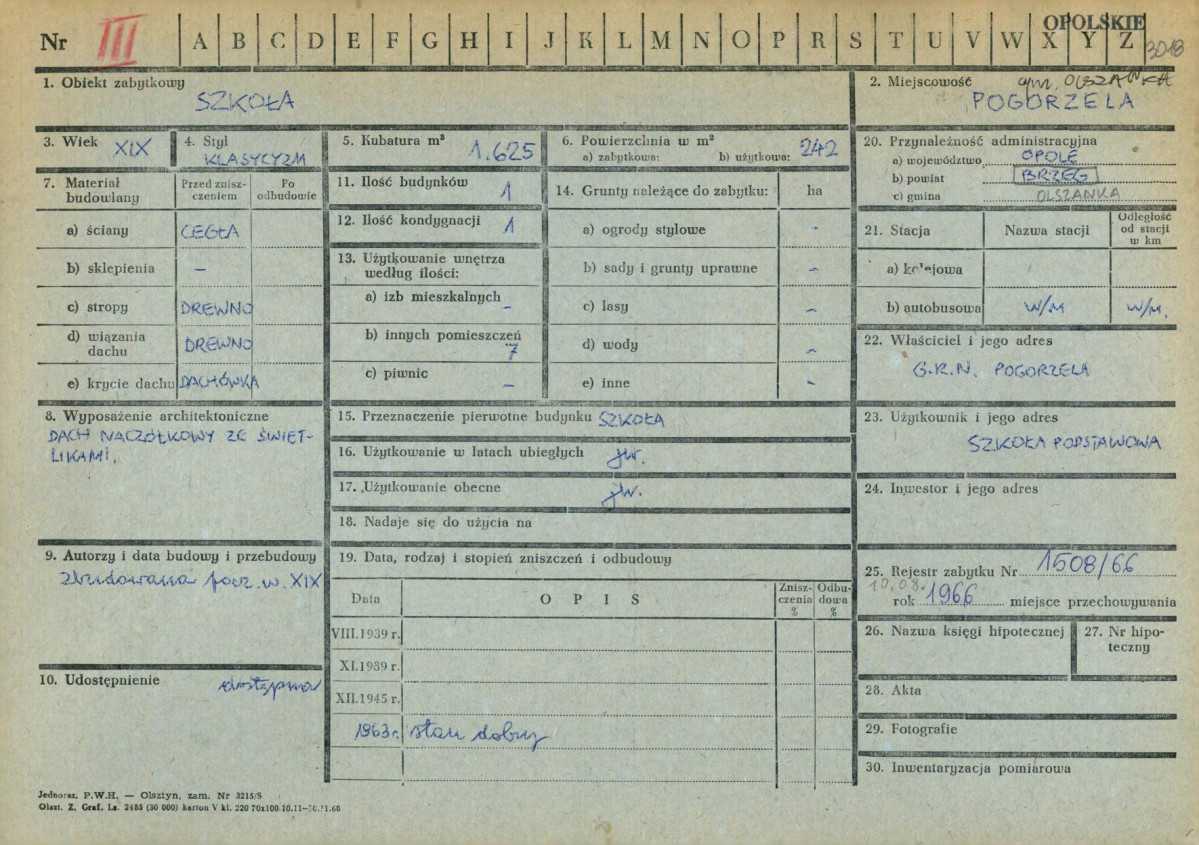 OPOLSKIE
Nr III A B C D E F G H I J K L M N O P R S T U V W X Y Z 3018
1. Obiekt zabytkowy
SZKOŁA
2. Miejscowość gm. OLSZANKA
POGORZELA
3. Wiek XIX
4. Styl
KLASYCYZM
5. Kubatura m³ 1.625
6. Powierzchnia w m²
a) zabytkowa: b) użytkowa: 242
7. Materiał budowlany
Przed zniszczeniem
Po odbudowie
a) ściany CEGŁA
b) sklepienia –
c) stropy DREWNO
d) wiązania dachu DREWNO
e) krycie dachu DACHÓWKA
8. Wyposażenie architektoniczne
DACH NACZÓŁKOWY ZE ŚWIET-
LIKAMI.
9. Autorzy i data budowy i przebudowy
zbudowana pocz. w. XIX
10. Udostępnienie dostępna
11. Ilość budynków 1
12. Ilość kondygnacji 1
13. Użytkowanie wnętrza
według ilości:
a) izb mieszkalnych –
b) innych pomieszczeń 7
c) piwnic –
14. Grunty należące do zabytku: ha
a) ogrody stylowe -
b) sady i grunty uprawne –
c) lasy –
d) wody –
e) inne –
15. Przeznaczenie pierwotne budynku SZKOŁA
16. Użytkowanie w latach ubiegłych jw.
17. Użytkowanie obecne jw.
18. Nadaje się do użycia na
19. Data, rodzaj i stopień zniszczeń i odbudowy
Data
O P I S
Znisz-
czenia
%
Odbu-
dowa
%
VIII.1939 r.
XI.1939 r.
XII.1945 r.
1963 r. stan dobry
20. Przynależność administracyjna
a) województwo OPOLE
b) powiat BRZEG
c) gmina OLSZANKA
21. Stacja
Nazwa stacji
Odległość
od stacji
w km
a) kolejowa
b) autobusowa W/M W/M.
22. Właściciel i jego adres
G.R.N. POGORZELA
23. Użytkownik i jego adres
SZKOŁA PODSTAWOWA
24. Inwestor i jego adres
25. Rejestr zabytku Nr 1508/66
10.08.
rok 1966 miejsce przechowywania
26. Nazwa księgi hipotecznej
27. Nr hipo-
teczny
28. Akta
29. Fotografie
30. Inwentaryzacja pomiarowa
Jednoraz. P.W.H. — Olsztyn, zam. Nr 3215/S
Olszt. Z. Graf. Ls. 2485 (30 000) karton V kl. 220 70x100